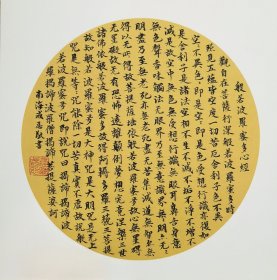 般若波羅蜜多心經
觀自在菩薩行深般若波羅蜜多時
照見五蘊皆空度一切苦厄舍利子色不異
空空不異色色即是空空即是色受想行識亦復如
是舍利子是諸法空相不生不滅不垢不淨不增不
減是故空中無色無受想行識無眼耳鼻舌身意
無色聲香味觸法無眼界乃至無意識界無無明亦無無
明盡乃至無老死亦無老死盡無苦集滅道無智亦無
得以無所得故菩提薩埵依般若波羅蜜多故心無罣礙
無罣礙故無有恐怖遠離顛倒夢想究竟涅槃三世
諸佛依般若波羅蜜多故得阿耨多羅三藐三菩提
故知般若波羅蜜多是大神咒是大明咒是無上
咒是無等等咒能除一切苦真實不虛故說般
若波羅蜜多咒即說咒曰揭諦揭諦波
羅揭諦波羅僧揭諦菩提薩婆訶
南海